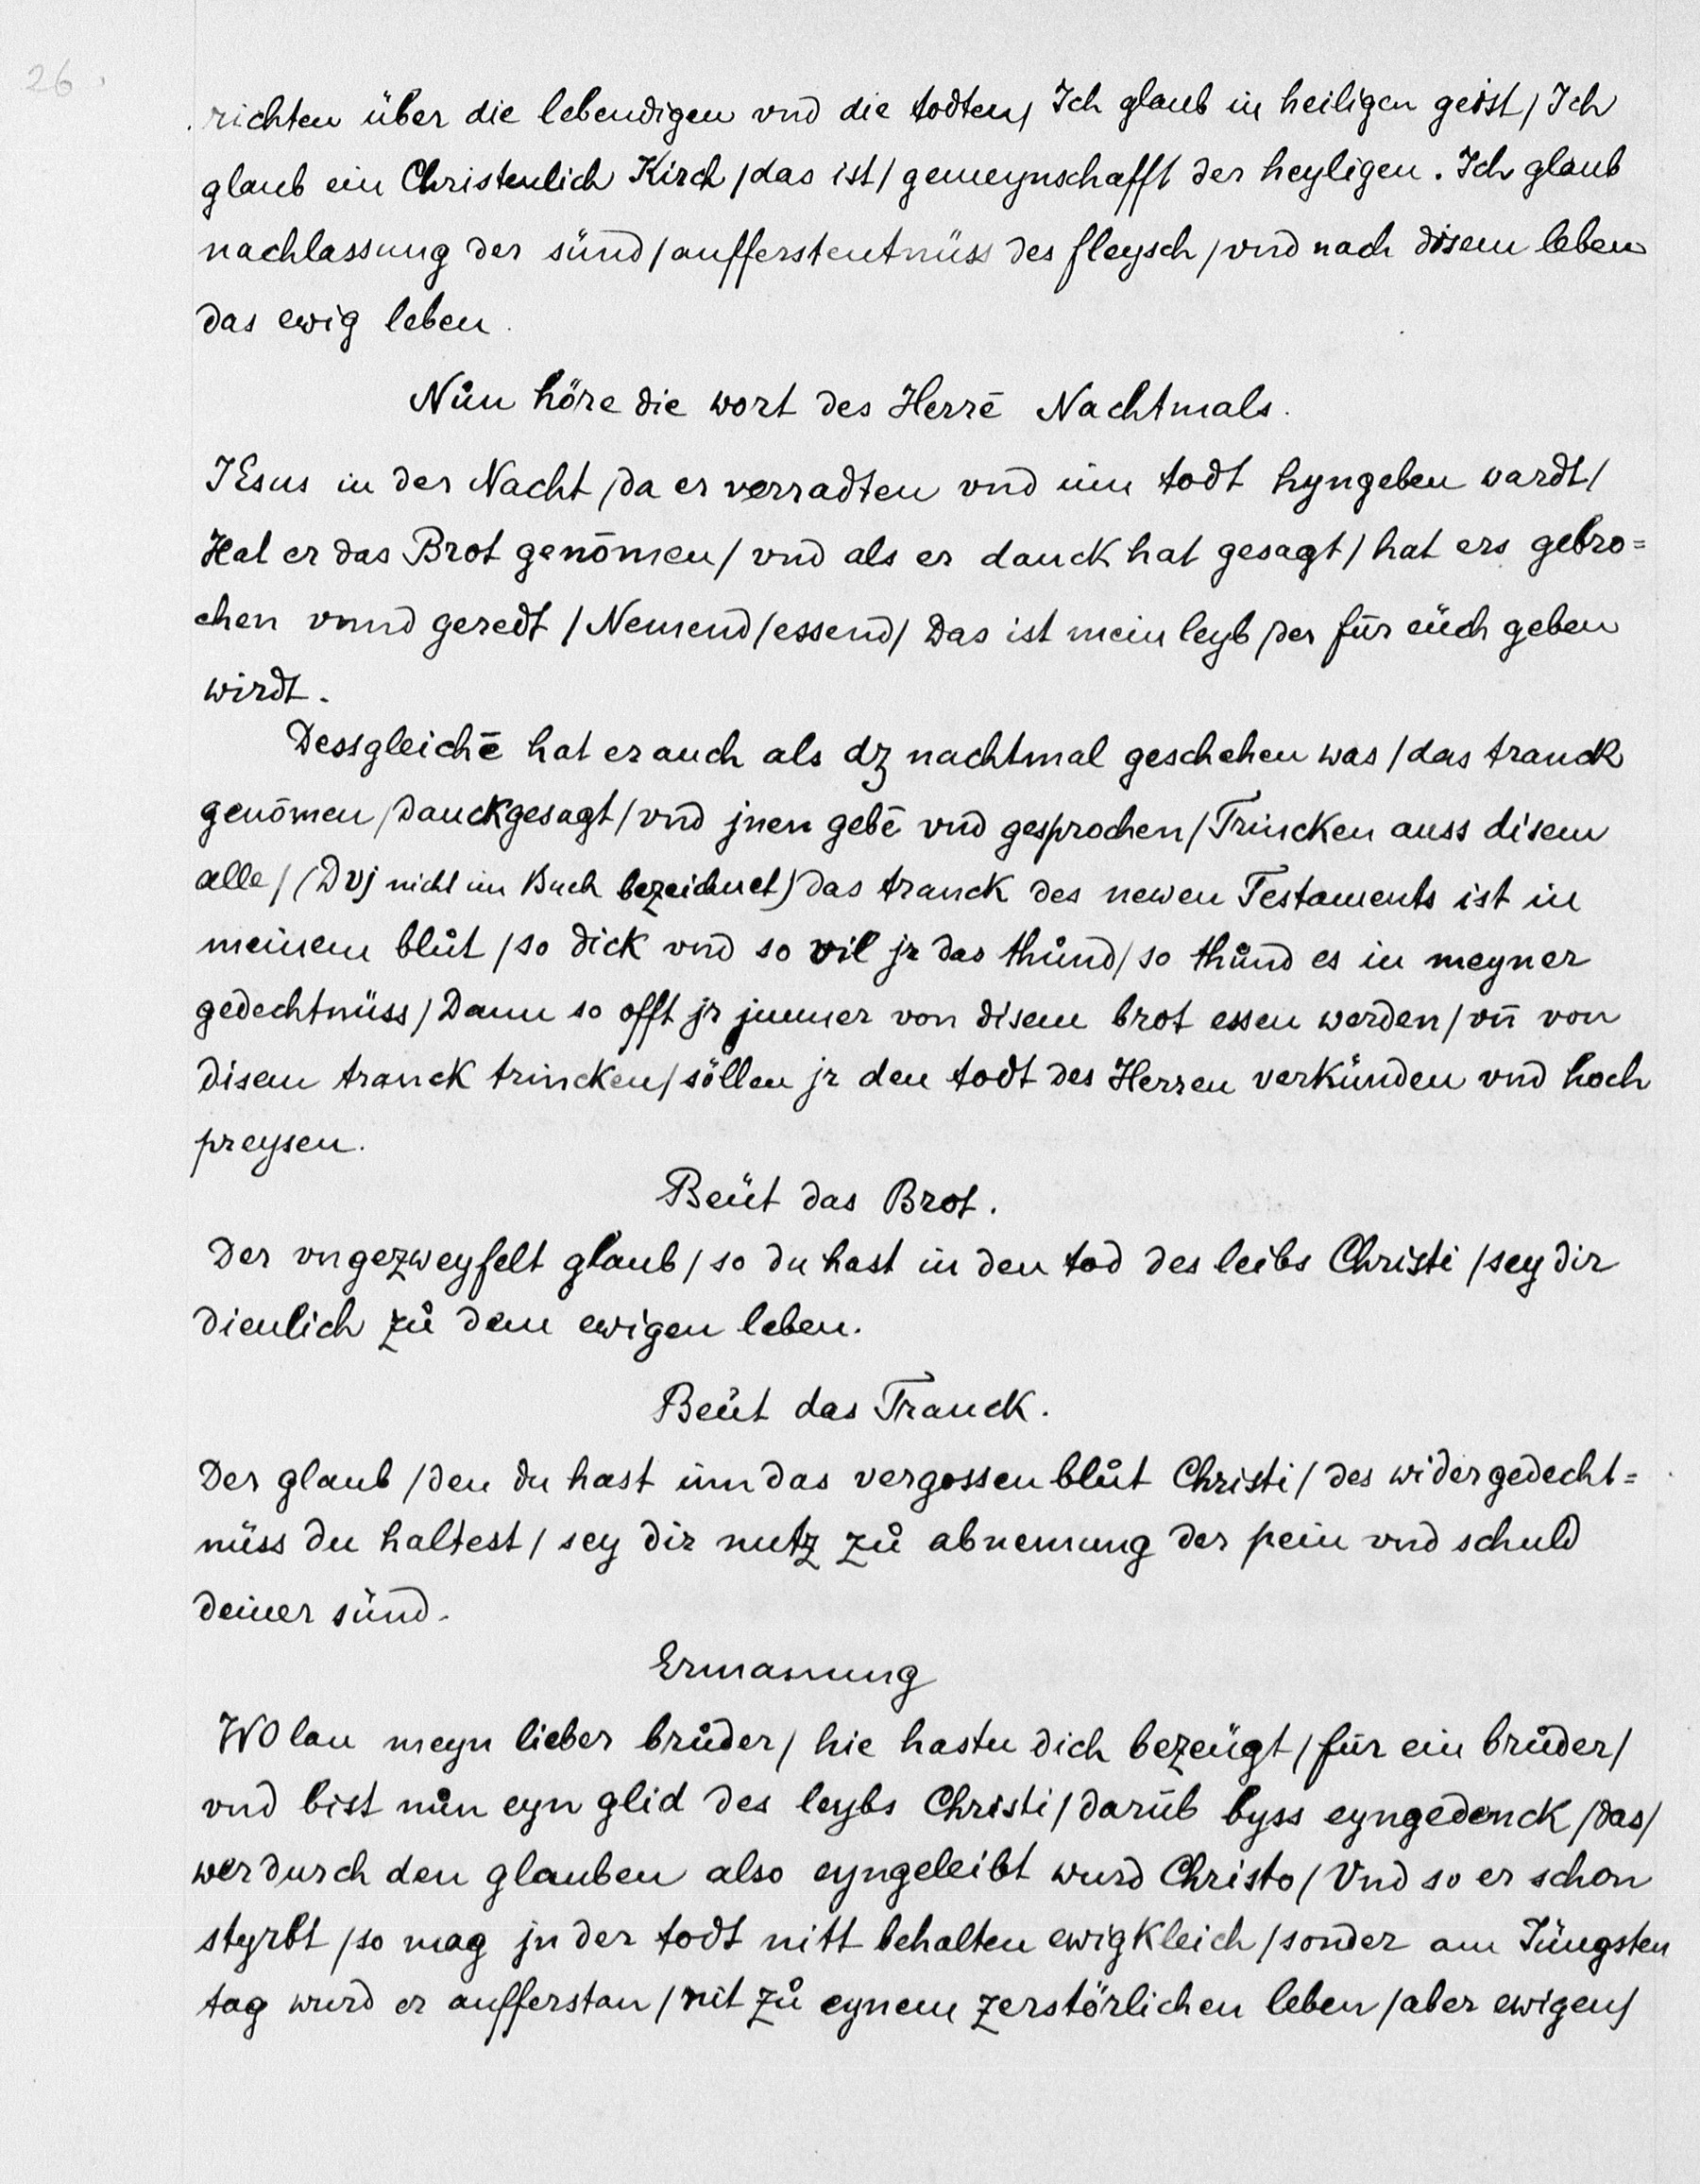 26.
richten über die lebendigen vnd die todten/ Ich glaub in heiligen geist/ Ich
glaub ein Christenlich Kirch/ das ist/ gemeynschafft der heyligen. Ich glaub
nachlassung der sünd/ aufferstentnüss des fleysch/ vnd nach disem leben
das ewig leben.
Nůn höre die wort des Herrē Nachtmals.
JEsus in der Nacht/ da er verradten vnd inn todt hyngeben wardt/
Hat er das Brot genōmen/ vnd als er danck hat gesagt/ hat ers gebro=
chen vnnd geredt/ Nemend/ essend/ Das ist mein leyb/ der für eüch geben
wirdt.
Dessgleichē hat er auch als dz nachtmal geschehen was/ das tranck
genōmen/ danckgesagt/ vnd jnen gebē vnd gesprochen/ Trincken auss disem
alle/ (Dvj nicht im Buch bezeichnet) das tranck des newen Testaments ist in
meinem blůt/ so dick vnd so vil jr das thůnd/ so thůnd es in meyner
gedechtnüss/ Dann so offt jr jmmer von disem brot essen werden/ vn̄ von
disem tranck trincken/ söllen jr den todt des Herren verkünden vnd hoch
preysen.
Beüt das Brot.
Der vngezweyfelt glaub/ so du hast in den tod des leibs Christi/ sey dir
dienlich zů dem ewigen leben.
Beüt das Tranck.
Der glaub/ den du hast inn das vergossen blůt Christi/ des widergedecht=
nüss du haltest/ sey dir nutz zů abnemung der pein vnd schuld
deiner sünd.
Ermanung
WOlan meyn lieber brůder/ hie hastu dich bezeügt/ für ein brůder/
vnd bist nůn eyn glid des leybs Christi/ darūb byss eyngedenck/ das/
wer durch den glauben also eyngeleibt wurd Christo/ Vnd so er schon
styrbt/ so mag jn der todt nitt behalten ewigkleich/ sonder am Jüngsten
tag wurd er aufferstan/ nit zů eynem zerstörlichen leben/ aber ewigen/